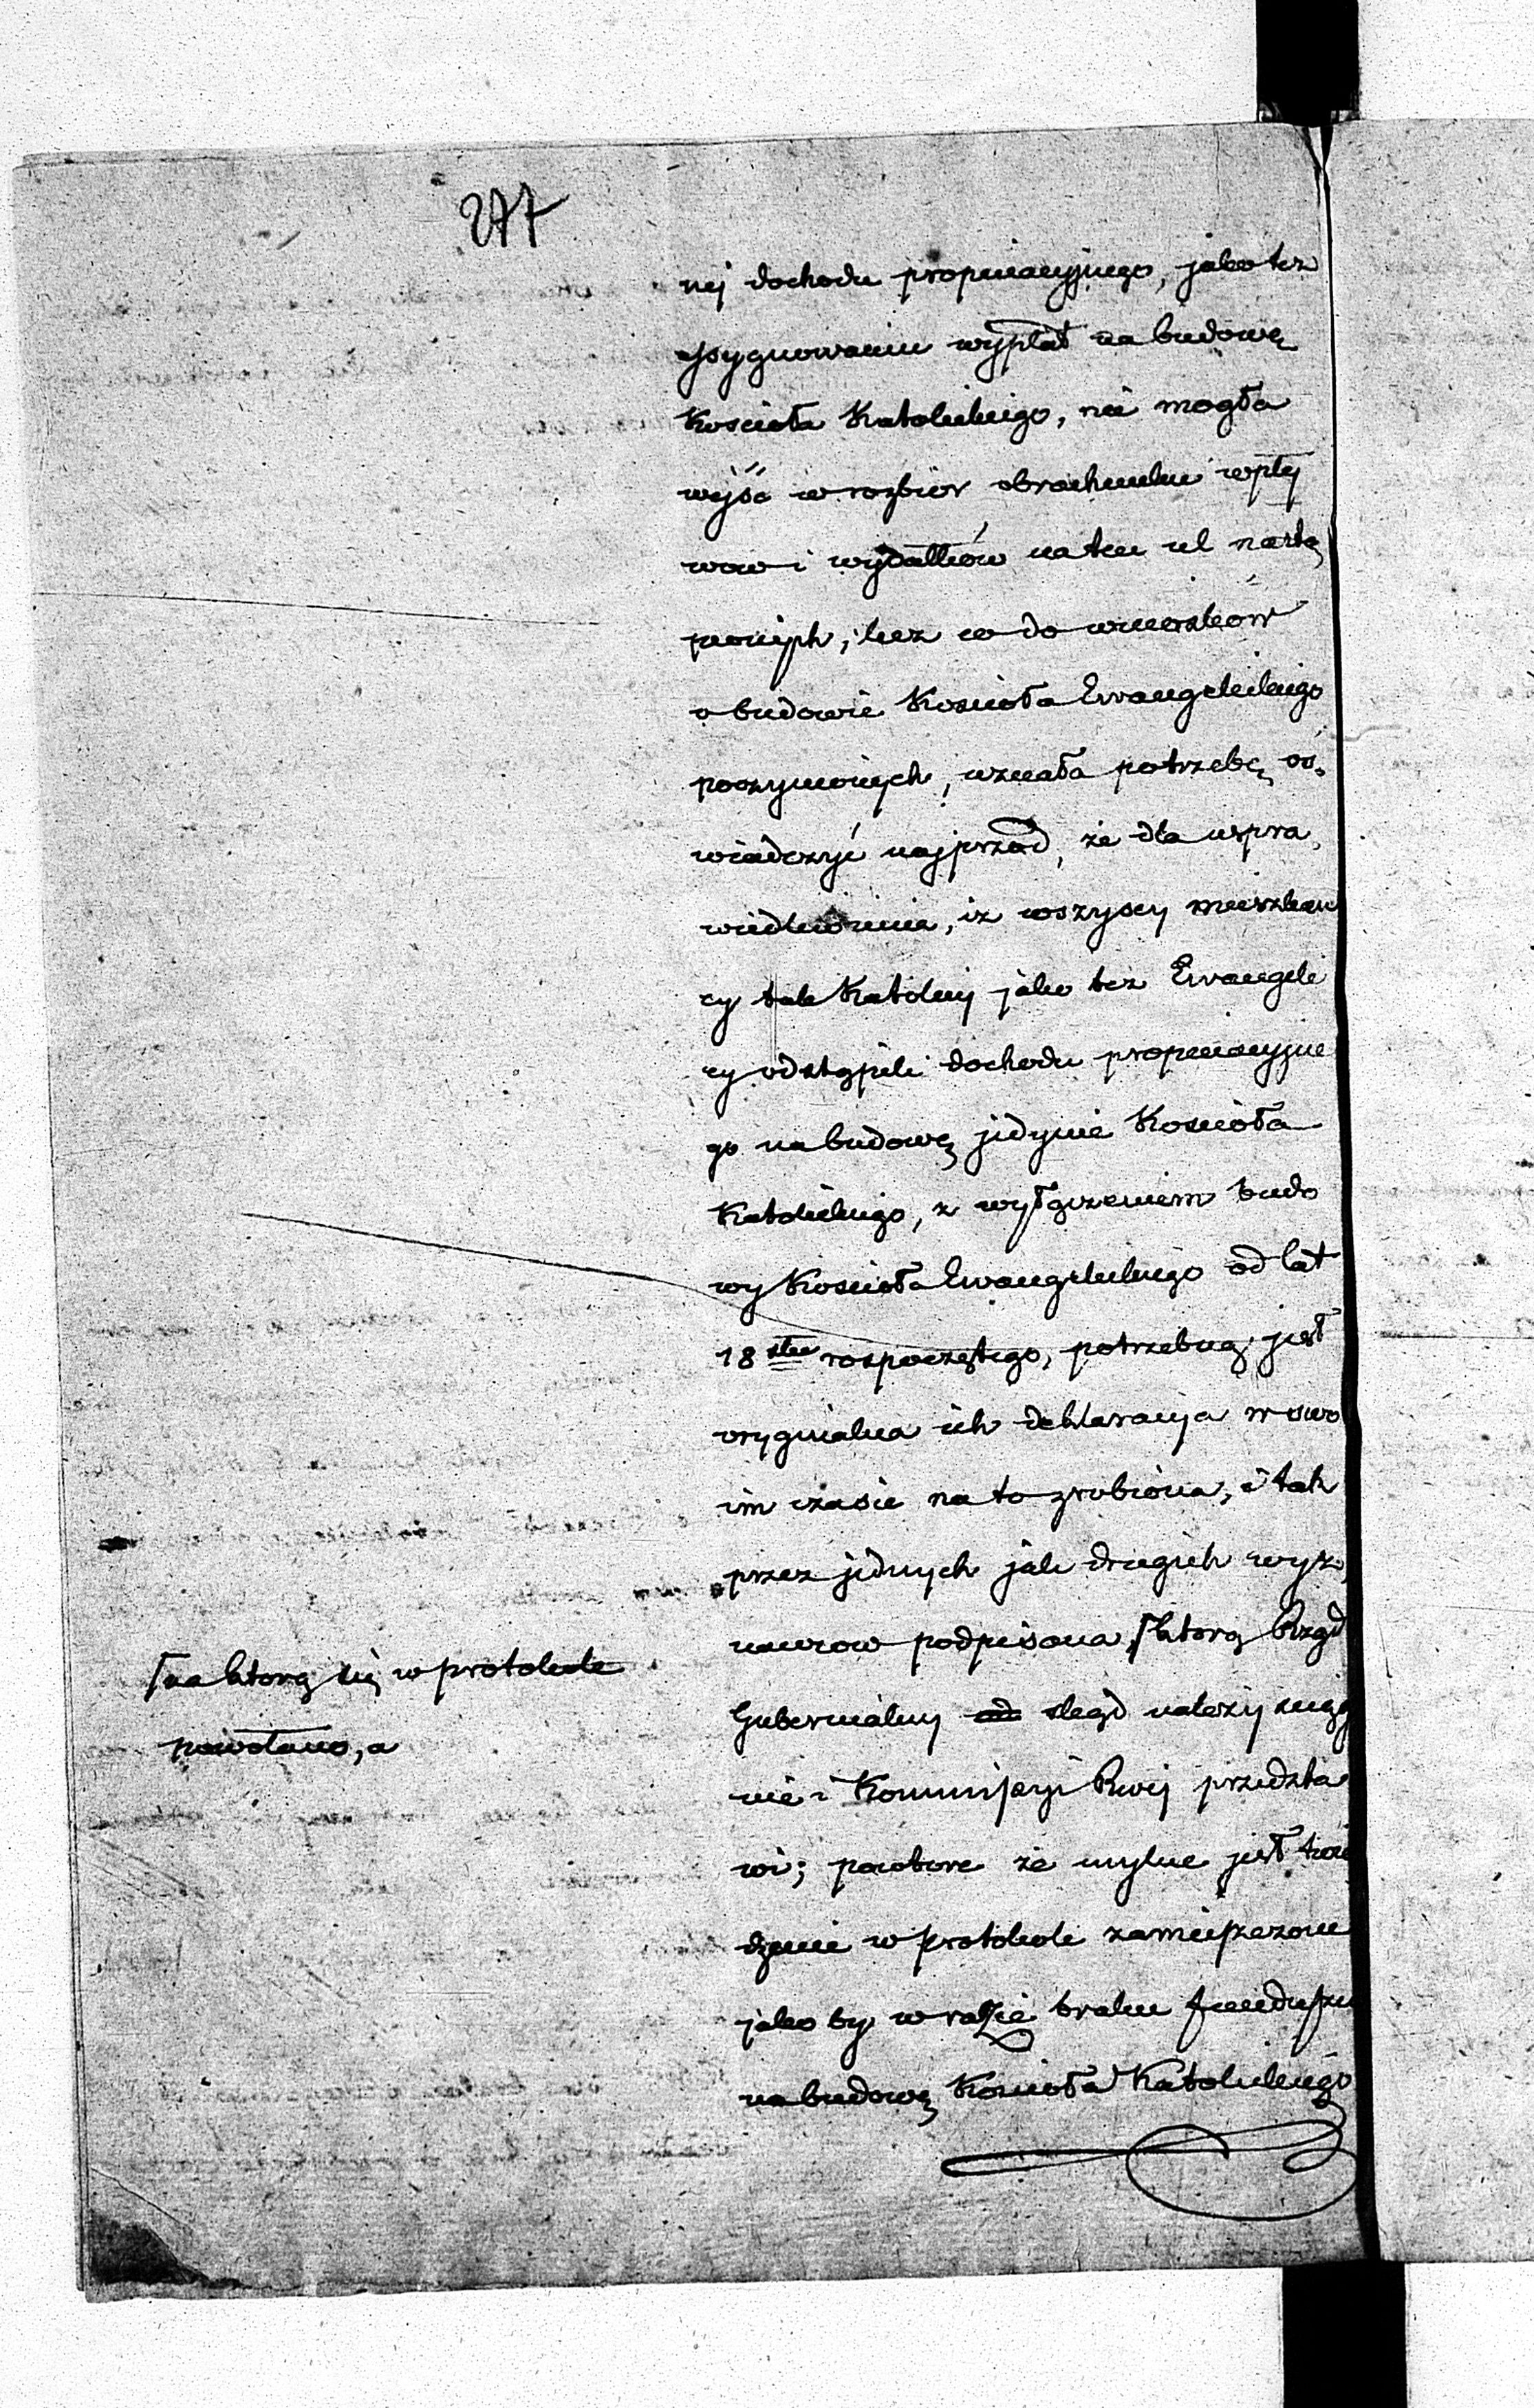 277
nej dochodu propinacyjnego, jako też
assygnowaniu wypłat na budowę
Kościoła Katolickiego, nie mogła
wejść w rozbiór obrachunku wpły
wow i wydatków na ten cel nastą
pionych, lecz co do wniosków
o budowie Kościoła Ewangelickiego
poczynionych, uznała potrzebę oś,
wiadczyć najprzód, że dla uspra,
wiedliwienia, iż wszyscy mieszkań
cy tak Katolicy jako też Ewangeli
cy odstąpili dochodu propinacyjne
go na budowę jedynie Kościoła
Katolickiego, z wyłączeniem budo
wy Kościoła Ewangelickiego od lat
18stu rozpoczętego, potrzebną jest
oryginalna ich deklaracya w swo
im czasie na to zrobiona, i tak
przez jednych jak drugich wyz,
nawcow podpisana, ⌈którą Rząd
Gubernialny skąd należy ściąg
nie i Kommissyi Rwej przedsta
wi; powtore że mylne jest twier
dzenie w protokole zamieszczone
jako by w razie braku funduszu
na budowę Kościoła Katolickiego
⌈na którą się w protokole
powołano, a